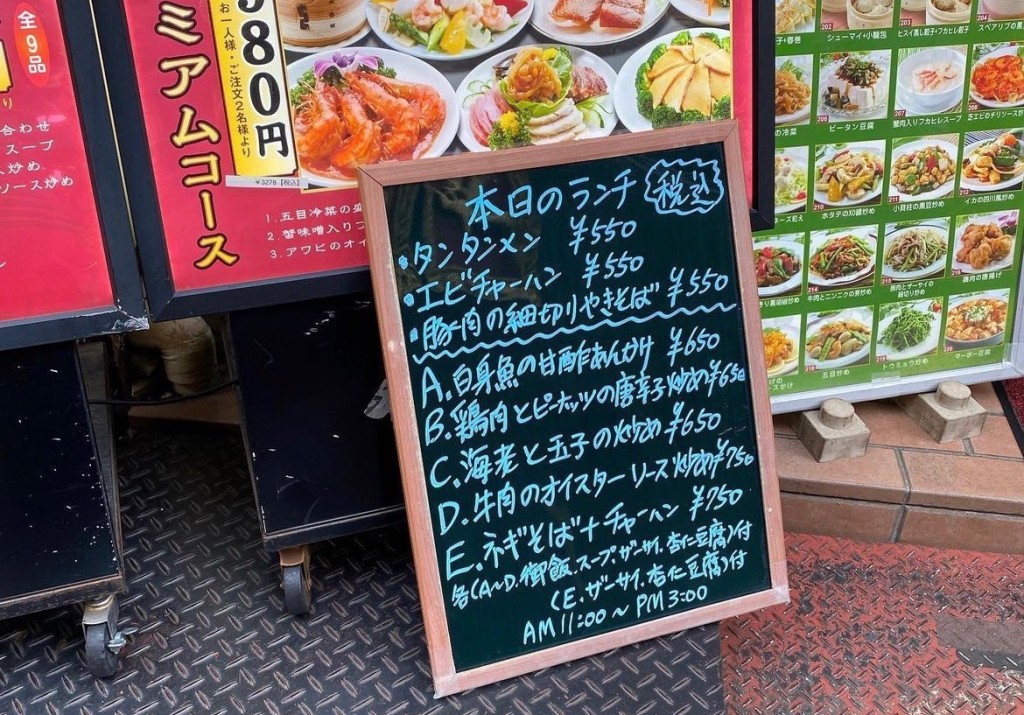 全9品
合わせ
スープ
炒め
ソース炒め
ミアムコース
980円
お一人様・ご注文2名様より
¥3278【税込】
1.五目冷菜の盛
2.蟹味噌入りフ
3.アワビのオイ
本日のランチ 税込
・タンタンメン ¥550
・エビチャーハン ¥550
・豚肉の細切りやきそば ¥550
A.白身魚の甘酢あんかけ ¥650
B.鶏肉とピーナッツの唐辛子炒め¥650
C.海老と玉子の炒め ¥650
D.牛肉のオイスターソース炒め¥750
E.ネギそば+チャーハン ¥750
各(A〜D.御飯.スープ.ザーサイ.杏仁豆腐)付
(E.ザーサイ.杏仁豆腐)付
AM 11:00 〜 PM 3:00
202
203
204
シューマイ+小籠包
206
207
208
ピータン豆腐
蟹肉入りフカヒレスープ
芝エビのチリソース炒め
210
211
212
イカの四川風炒め
214
215
216
牛肉とニンニクの芽炒め
鶏肉の唐揚げ
218
219
220
五目炒め
トウミョウ炒め
マーボー豆腐